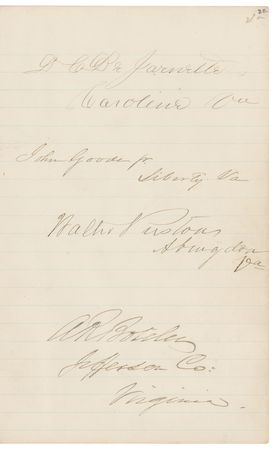 D C De Jarnette
Caroline Va
John Goode Jr
Liberty Va
Walter Preston
Abingdon
Va
A R Boteler
Jefferson Co:
Virginia.